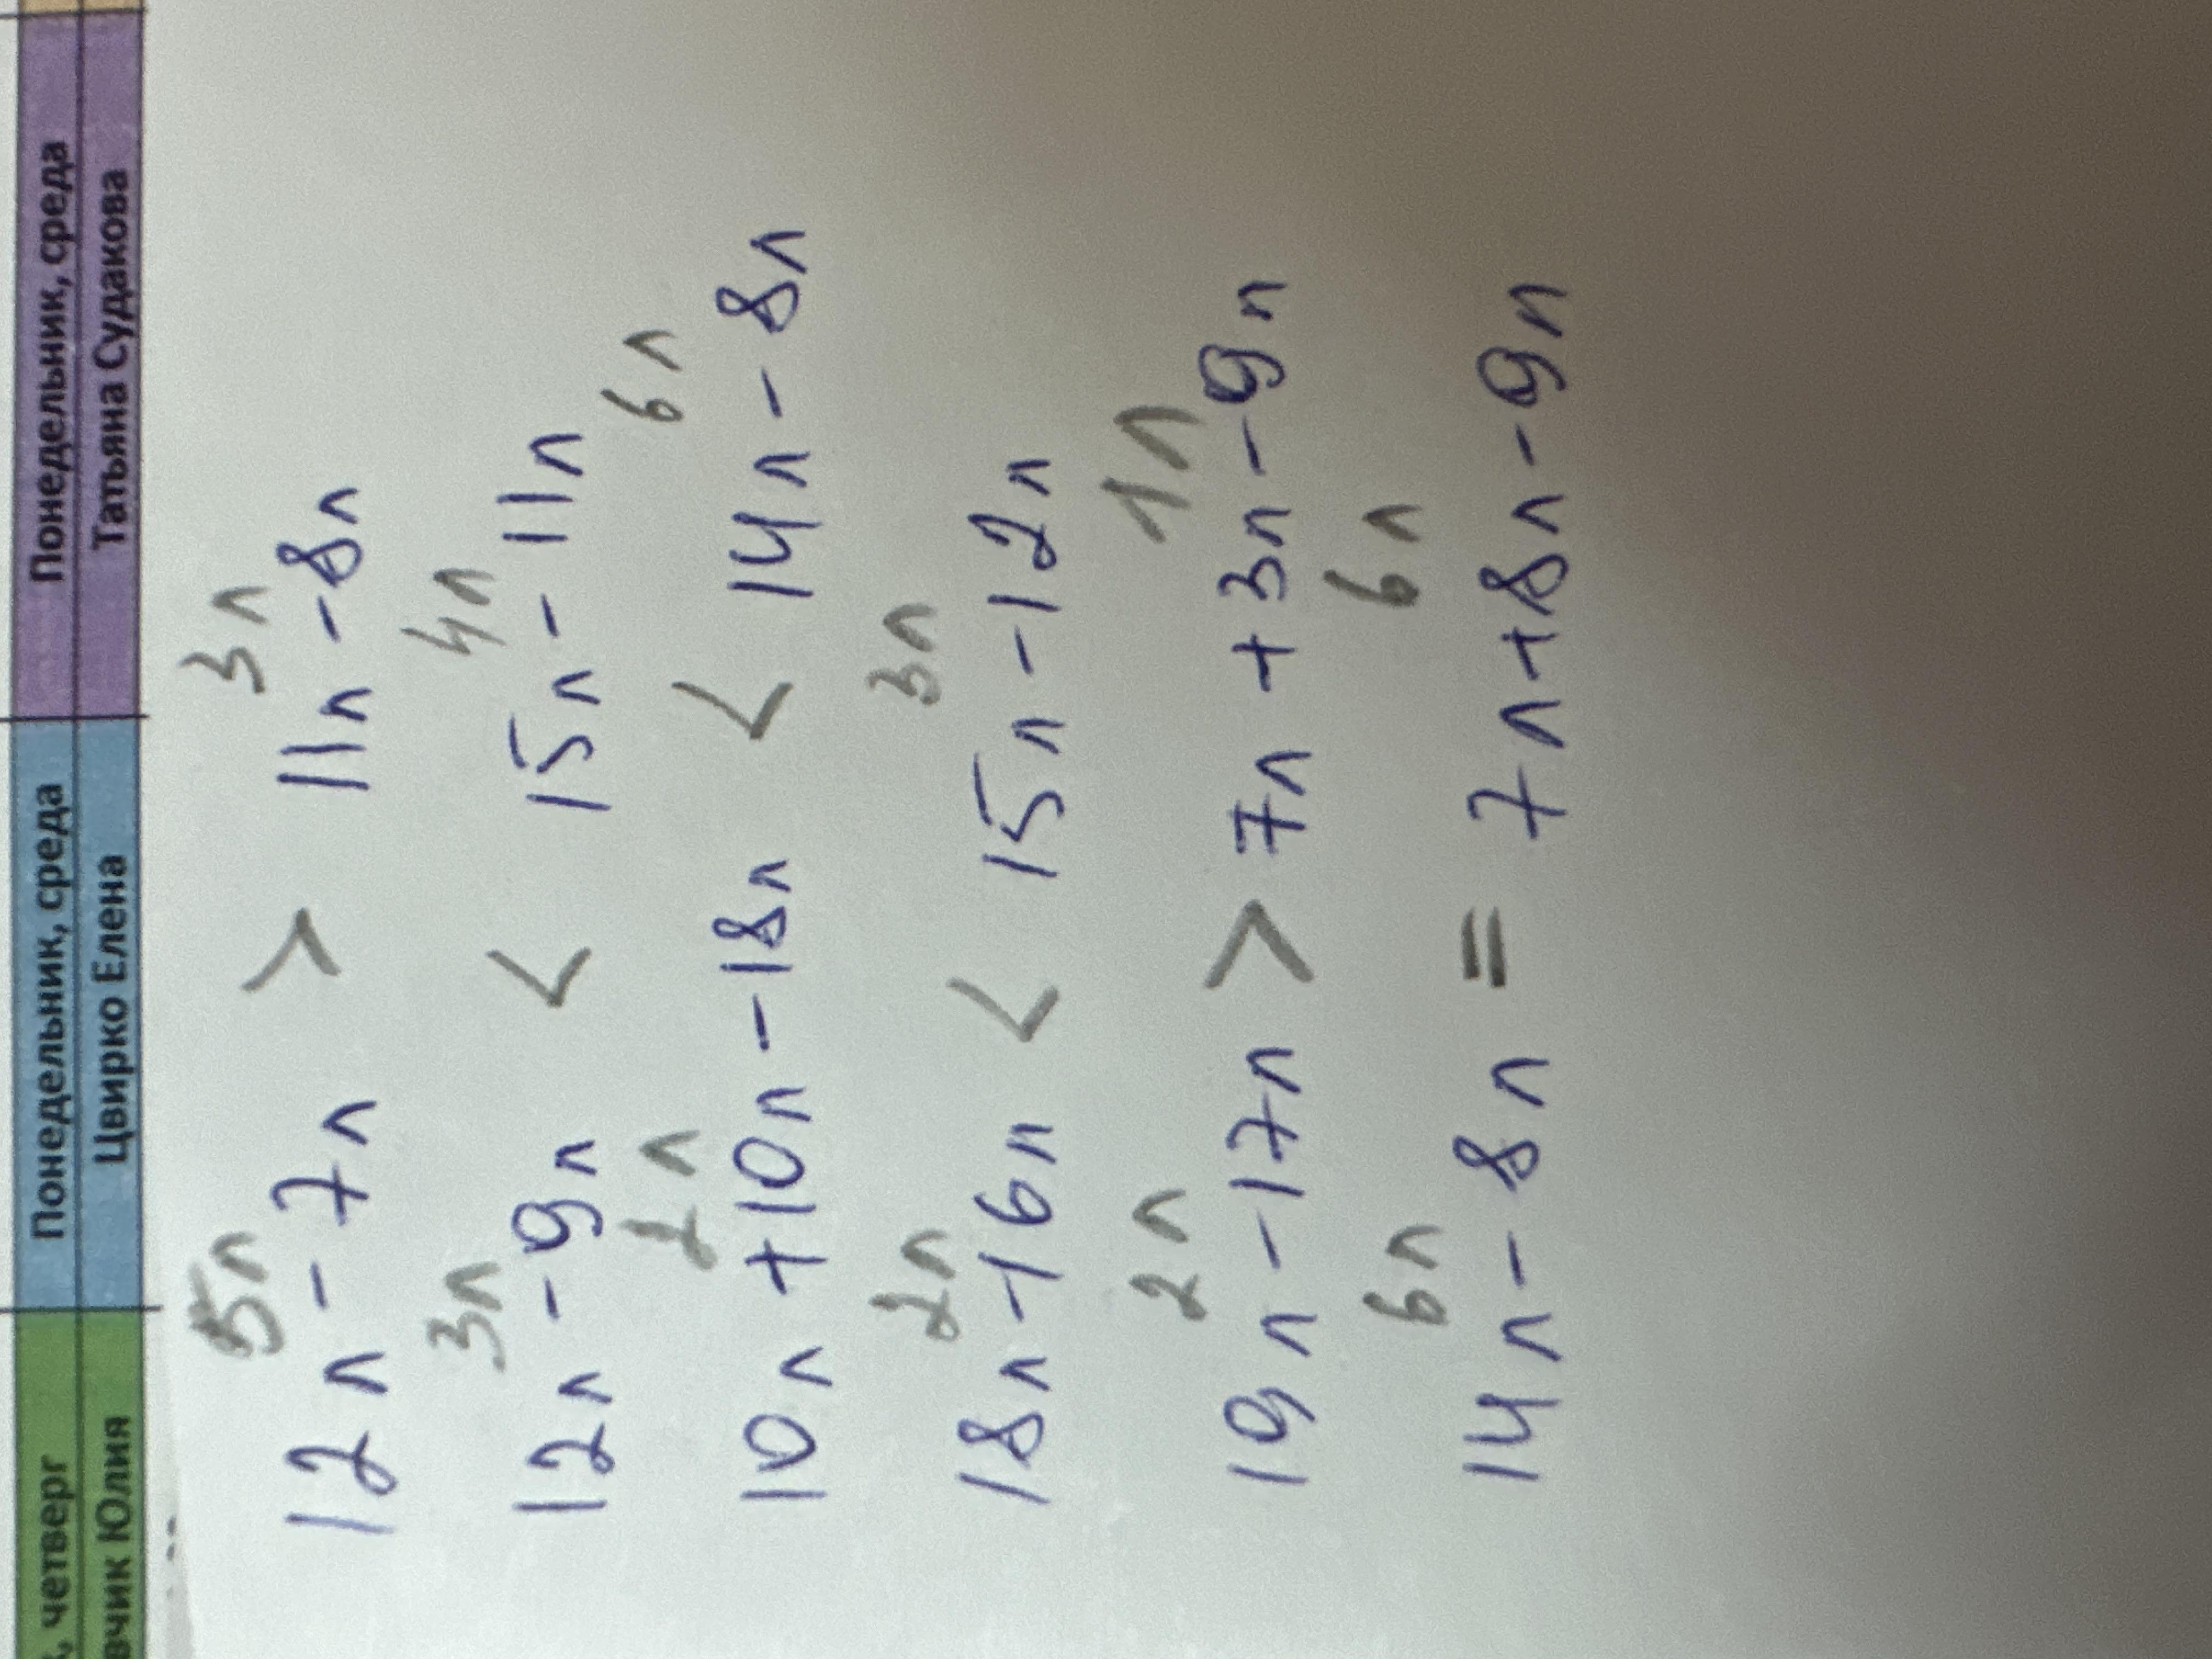 , четверг Понедельник, среда Понедельник, среда
вчик Юлия Цвирко Елена Татьяна Судакова
5л 3л
12л - 7л > 11л - 8л
3л 4л
12л - 9л < 15л - 11л
2л 6л
10л + 10л - 18л < 14л - 8л
2л 3л
18л - 16л < 15л - 12л
2л 1л
19л - 17л > 7л + 3л - 9л
6л 6л
14л - 8л = 7л + 8л - 9л